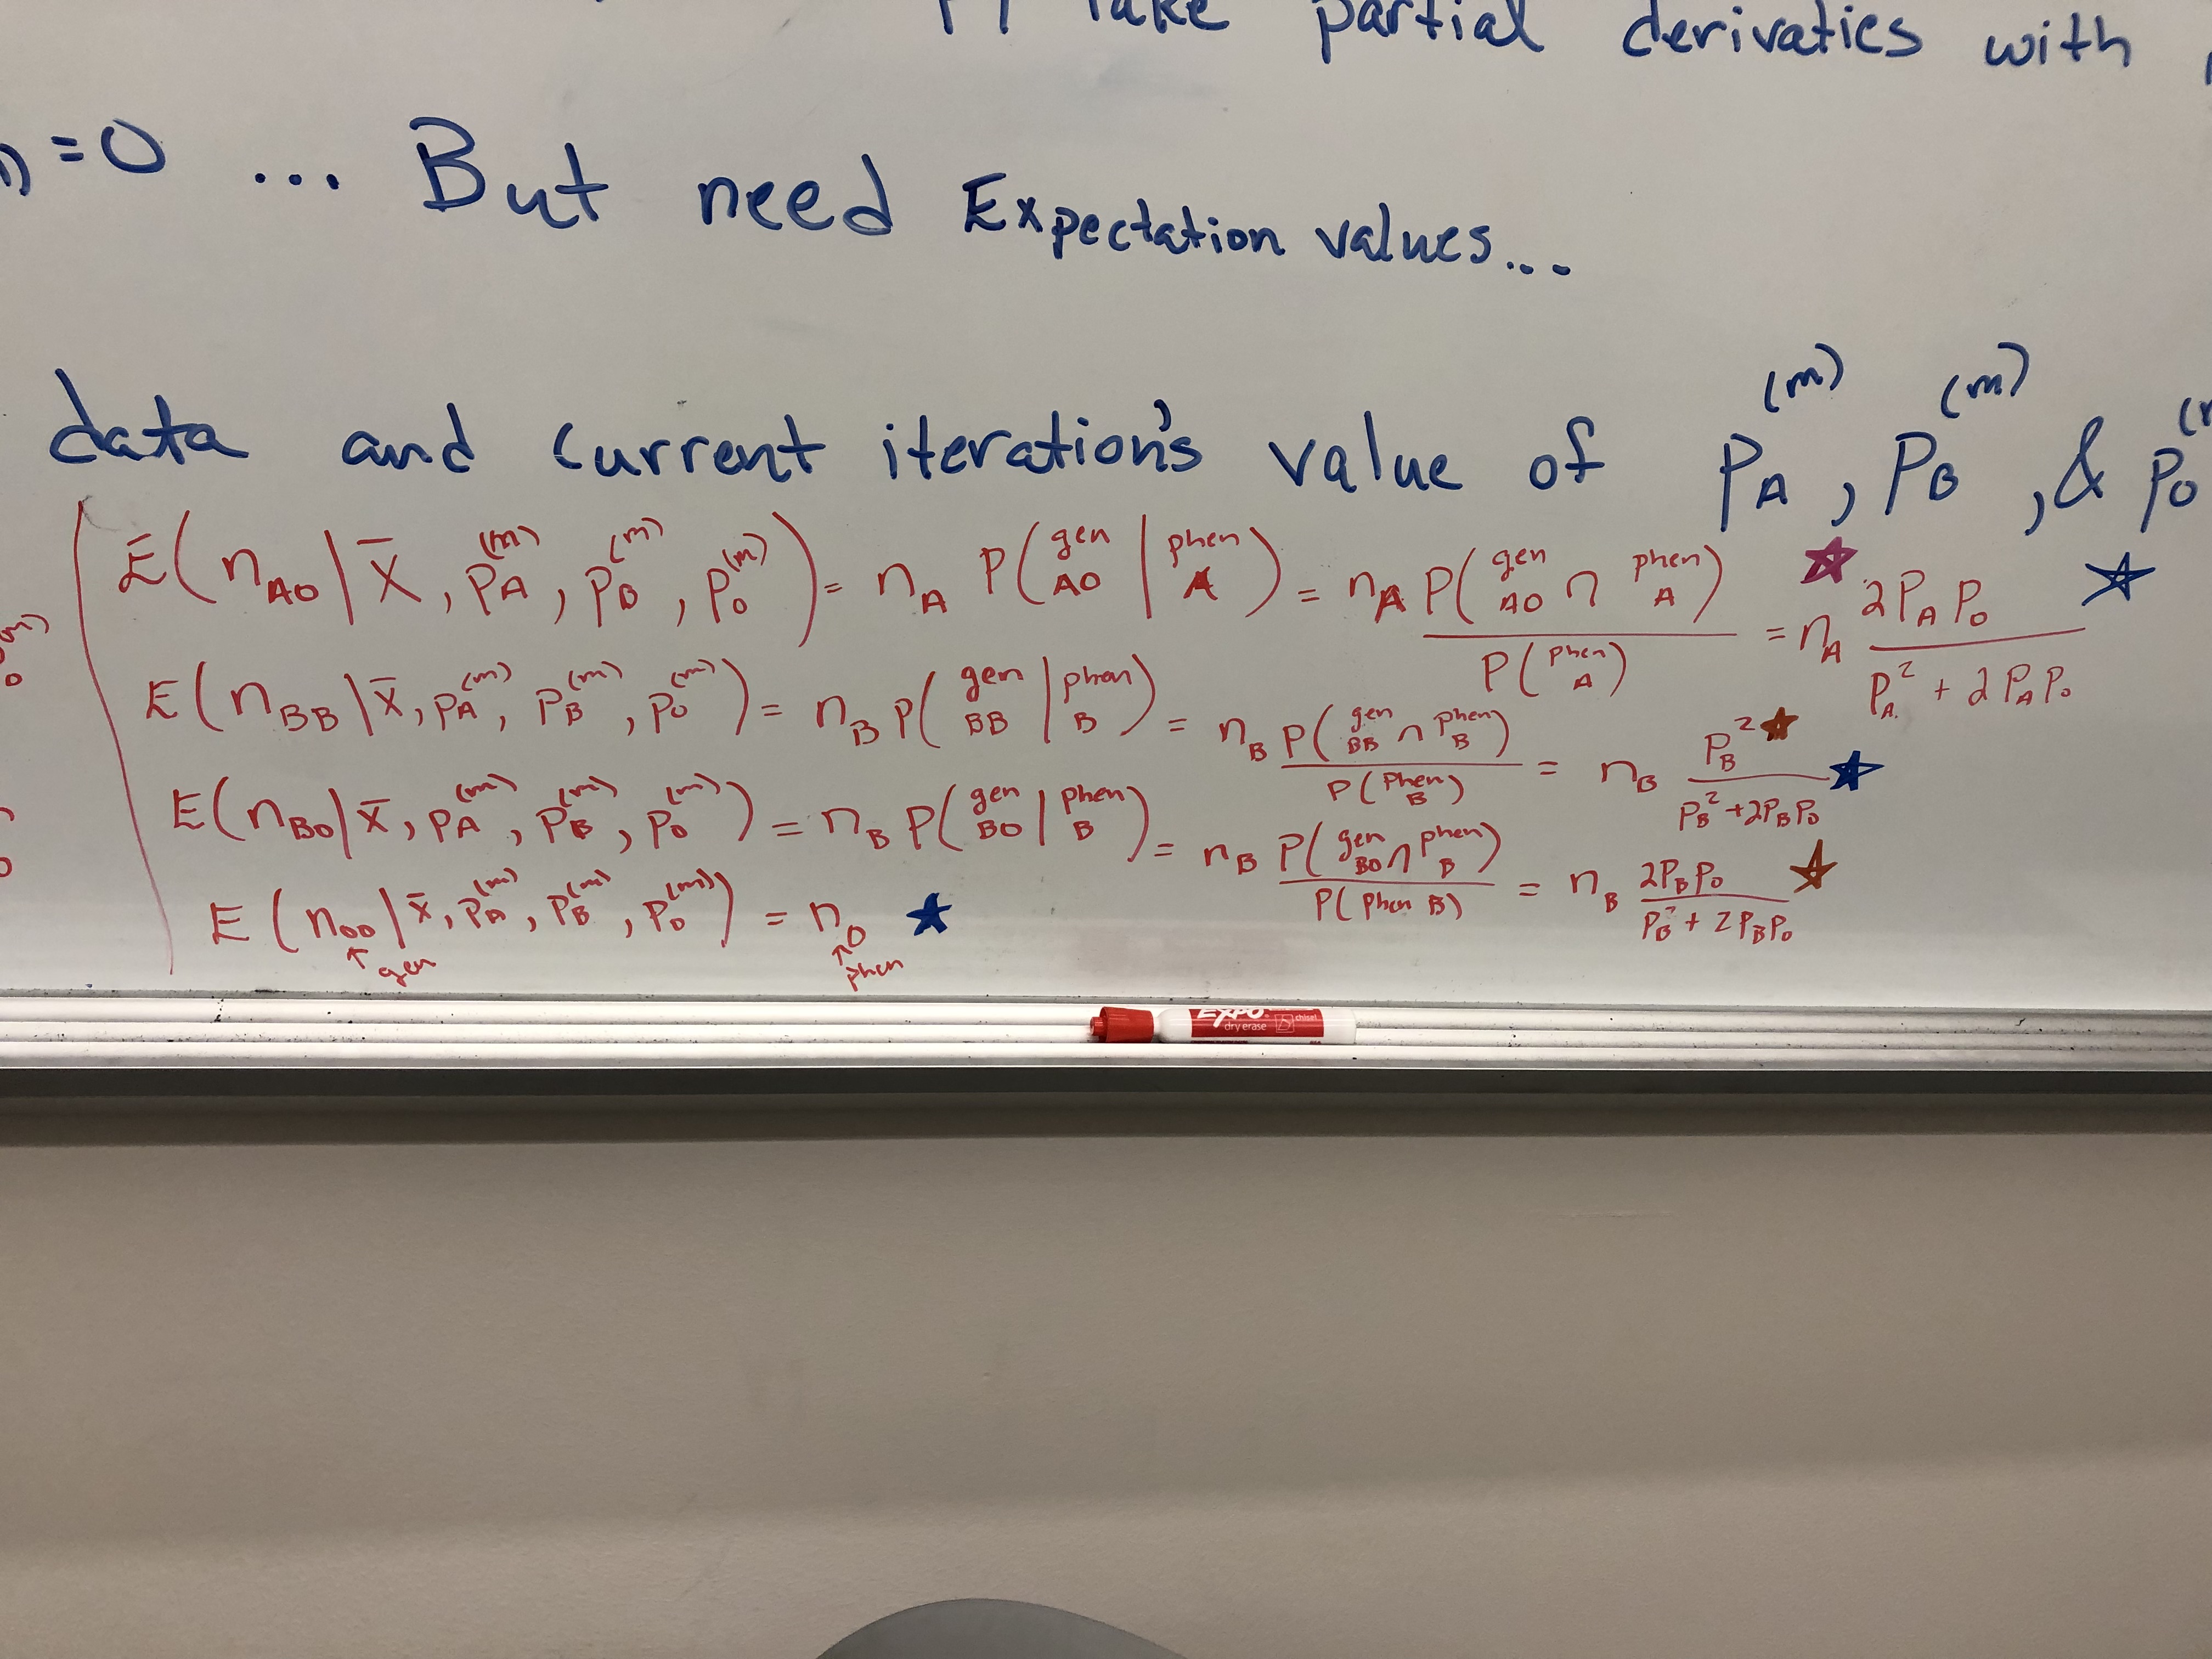 Take partial derivaties with
=0 ... But need Expectation values...
data and current iteration's value of p_A^(m), p_B^(m), & p_O
E(n_AO | x̄, p_A^(m), p_B^(m), p_O^(m)) = n_A P(gen AO | phen A) = n_A P(gen AO ∩ phen A) / P(phen A) ★ = n_A 2P_A P_O / P_A^2 + 2P_A P_O ☆
E(n_BB | x̄, p_A^(m), p_B^(m), p_O^(m)) = n_B P(gen BB | phen B) = n_B P(gen BB ∩ phen B) / P(phen B) = n_B P_B^2 / P_B^2 + 2P_B P_O ★ ★
E(n_BO | x̄, p_A^(m), p_B^(m), p_O^(m)) = n_B P(gen BO | phen B) = n_B P(gen BO ∩ phen B) / P(phen B) = n_B 2P_B P_O / P_B^2 + 2P_B P_O ★
E(n_OO | x̄, p_A^(m), p_B^(m), p_O^(m)) = n_O ★
↑ gen ↑ phen
EXPO
dry erase chisel